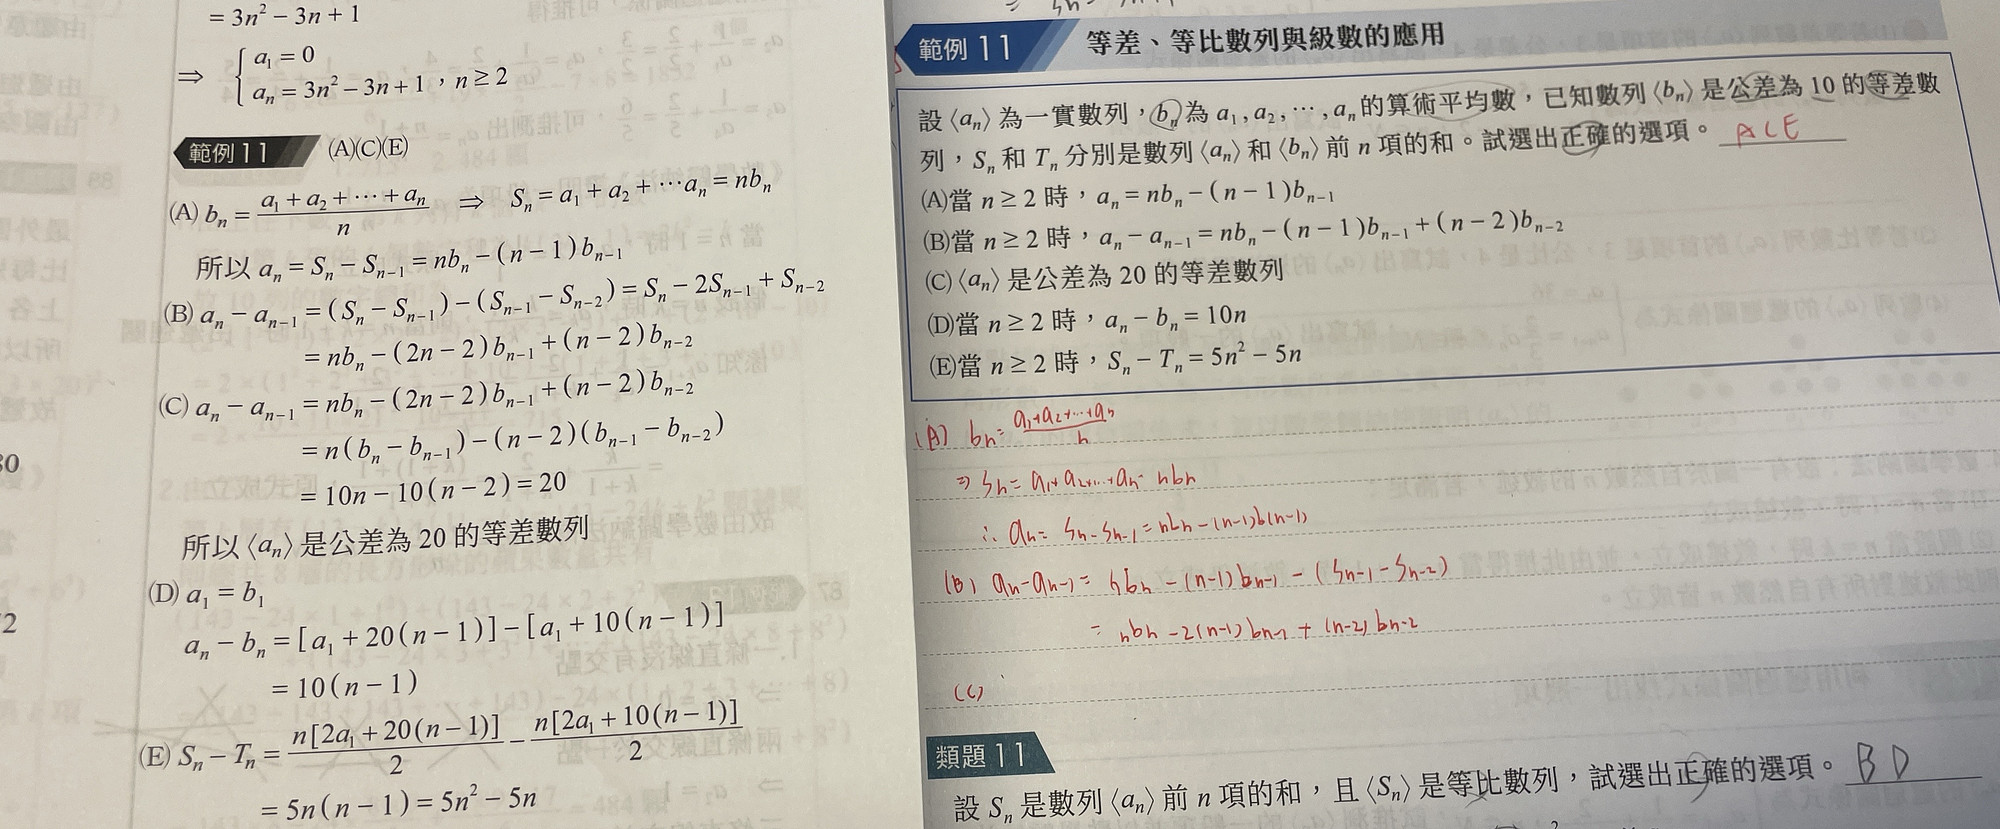 = 3n² − 3n + 1
⇒ { a₁ = 0
aₙ = 3n² − 3n + 1，n ≥ 2
範例 11 (A)(C)(E)
(A) bₙ = (a₁ + a₂ + ⋯ + aₙ)/n ⇒ Sₙ = a₁ + a₂ + ⋯aₙ = nbₙ
所以 aₙ = Sₙ − Sₙ₋₁ = nbₙ − (n − 1)bₙ₋₁
(B) aₙ − aₙ₋₁ = (Sₙ − Sₙ₋₁) − (Sₙ₋₁ − Sₙ₋₂) = Sₙ − 2Sₙ₋₁ + Sₙ₋₂
= nbₙ − (2n − 2)bₙ₋₁ + (n − 2)bₙ₋₂
(C) aₙ − aₙ₋₁ = nbₙ − (2n − 2)bₙ₋₁ + (n − 2)bₙ₋₂
= n(bₙ − bₙ₋₁) − (n − 2)(bₙ₋₁ − bₙ₋₂)
= 10n − 10(n − 2) = 20
所以〈aₙ〉是公差為 20 的等差數列
(D) a₁ = b₁
aₙ − bₙ = [a₁ + 20(n − 1)] − [a₁ + 10(n − 1)]
= 10(n − 1)
(E) Sₙ − Tₙ = n[2a₁ + 20(n − 1)]/2 − n[2a₁ + 10(n − 1)]/2
= 5n(n − 1) = 5n² − 5n
範例 11 等差、等比數列與級數的應用
設〈aₙ〉為一實數列，bₙ 為 a₁ , a₂ , ⋯ , aₙ 的算術平均數，已知數列〈bₙ〉是公差為 10 的等差數
列，Sₙ 和 Tₙ 分別是數列〈aₙ〉和〈bₙ〉前 n 項的和。試選出正確的選項。 ACE
(A)當 n ≥ 2 時，aₙ = nbₙ − (n − 1)bₙ₋₁
(B)當 n ≥ 2 時，aₙ − aₙ₋₁ = nbₙ − (n − 1)bₙ₋₁ + (n − 2)bₙ₋₂
(C)〈aₙ〉是公差為 20 的等差數列
(D)當 n ≥ 2 時，aₙ − bₙ = 10n
(E)當 n ≥ 2 時，Sₙ − Tₙ = 5n² − 5n
(A) bₙ = (a₁+a₂+⋯+aₙ)/n
⇒ Sₙ = a₁+a₂+⋯+aₙ = nbₙ
∴ aₙ = Sₙ − Sₙ₋₁ = nbₙ − (n−1)b(n−1)
(B) aₙ − aₙ₋₁ = nbₙ − (n−1)bₙ₋₁ − (Sₙ₋₁ − Sₙ₋₂)
= nbₙ − 2(n−1)bₙ₋₁ + (n−2)bₙ₋₂
(C)
類題 11
設 Sₙ 是數列〈aₙ〉前 n 項的和，且〈Sₙ〉是等比數列，試選出正確的選項。 BD